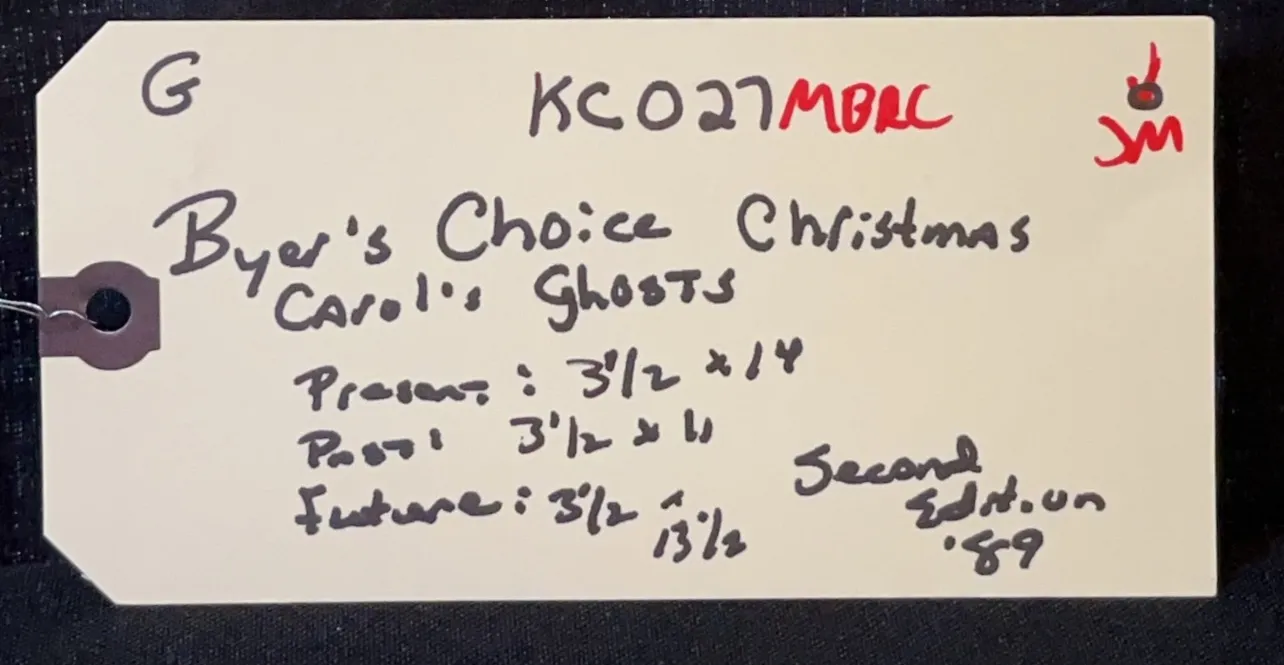 G KC027MBRC
JM
Byer's Choice Christmas
Carol's Ghosts
Present: 3 1/2 x 14
Past: 3 1/2 x 11
Future: 3 1/2 x 13 1/2
Second
Edition
'89